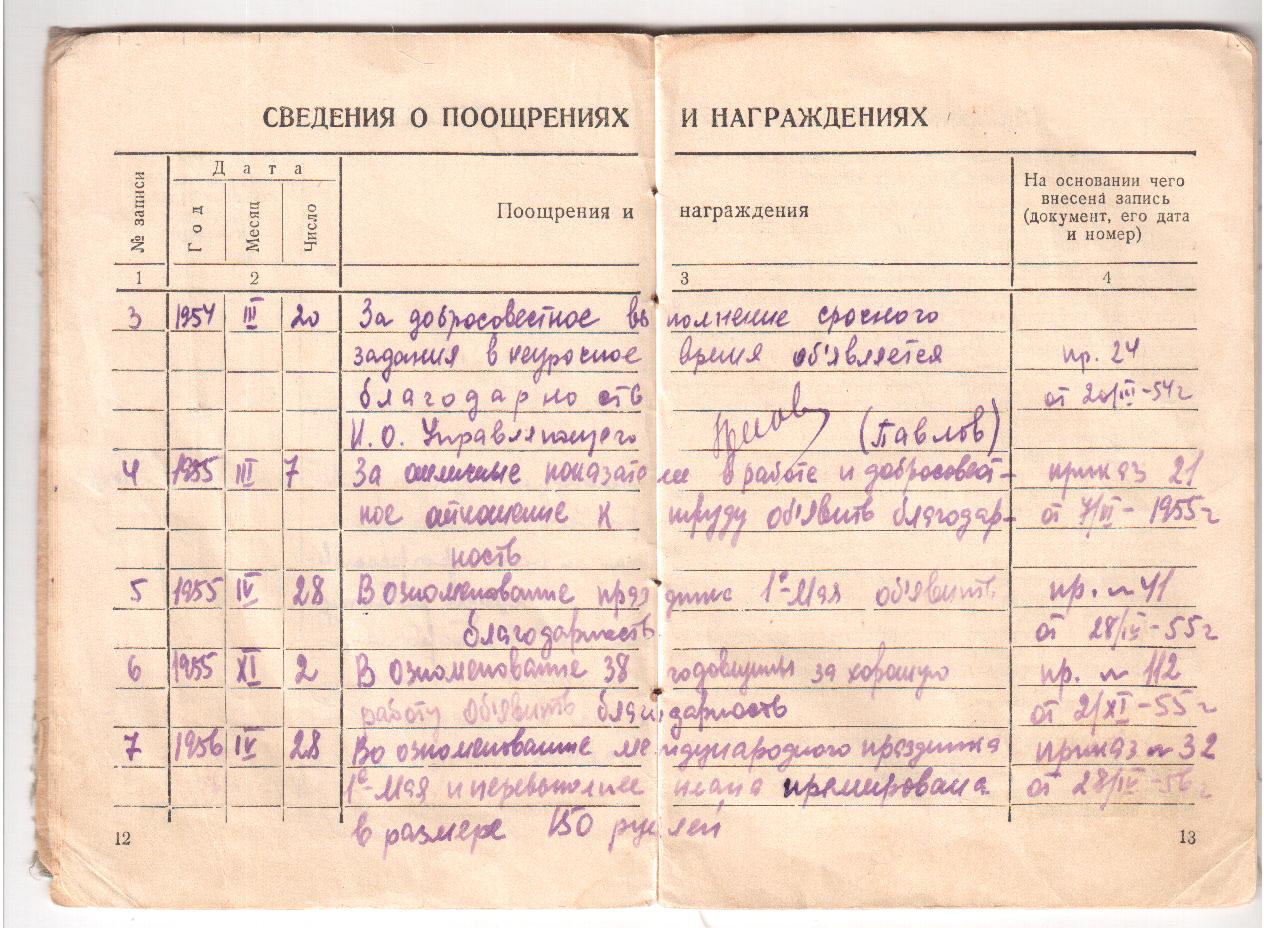 СВЕДЕНИЯ О ПООЩРЕНИЯХ И НАГРАЖДЕНИЯХ
№ записи
Дата
Год
Месяц
Число
Поощрения и награждения
На основании чего
внесена запись
(документ, его дата
и номер)
1 2 3 4
3 1954 III 20 За добросовестное выполнение срочного
задания в неурочное время об'является пр. 24
благодарность от 20/III-54г
И.О. Управляющего (Павлов)
4 1955 III 7 За отличные показатели в работе и добросовест- приказ 21
ное отношение к труду об'явить благодар- от 7/III-1955г
ность
5 1955 IV 28 В ознаменование праздника 1е-Мая об'явить пр. № 41
благодарность от 28/IV-55г
6 1955 XI 2 В ознаменование 38 годовщины за хорошую пр. № 112
работу об'явить благодарность от 2/XI-55г
7 1956 IV 28 Во ознаменование международного праздника приказ № 32
1е-Мая и перевыполнее плана премирована от 28/IV-56г
в размере 150 рублей
12 13